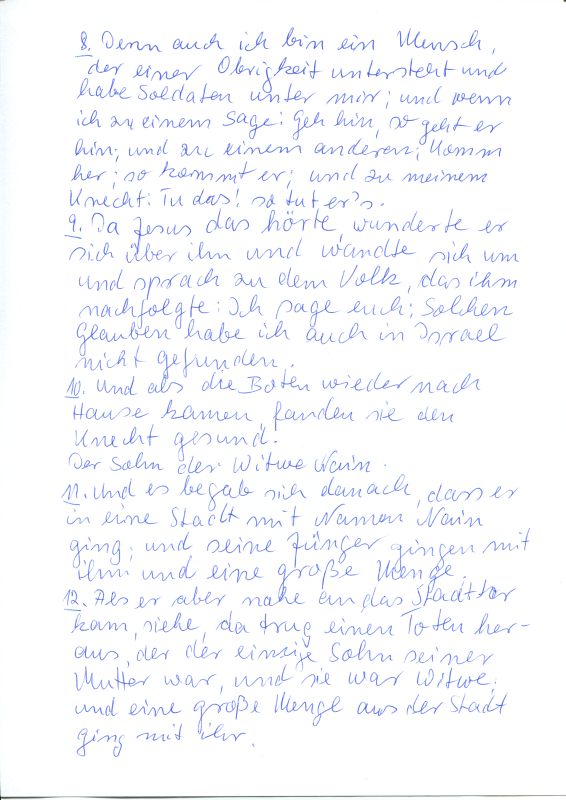 8. Denn auch ich bin ein Mensch,
der einer Obrigkeit untersteht und
habe Soldaten unter mir; und wenn
ich zu einem sage: Geh hin, so geht er
hin; und zu einem anderen; Komm
her; so kommt er; und zu meinem
Knecht: Tu das! so tut er's.
9. Da Jesus das hörte, wunderte er
sich über ihn und wandte sich um
und sprach zu dem Volk, das ihm
nachfolgte: Ich sage euch; Solchen
Glauben habe ich auch in Israel
nicht gefunden.
10. Und als die Boten wieder nach
Hause kamen, fanden sie den
Knecht gesund.
Der Sohn der Witwe Nain.
11. Und es begab sich danach, dass er
in eine Stadt mit Namen Nain
ging; und seine Jünger gingen mit
ihm und eine große Menge.
12. Als er aber nahe an das Stadttor
kam, siehe, da trug einen Toten her-
aus, der der einzige Sohn seiner
Mutter war, und sie war Witwe;
und eine große Menge aus der Stadt
ging mit ihr.